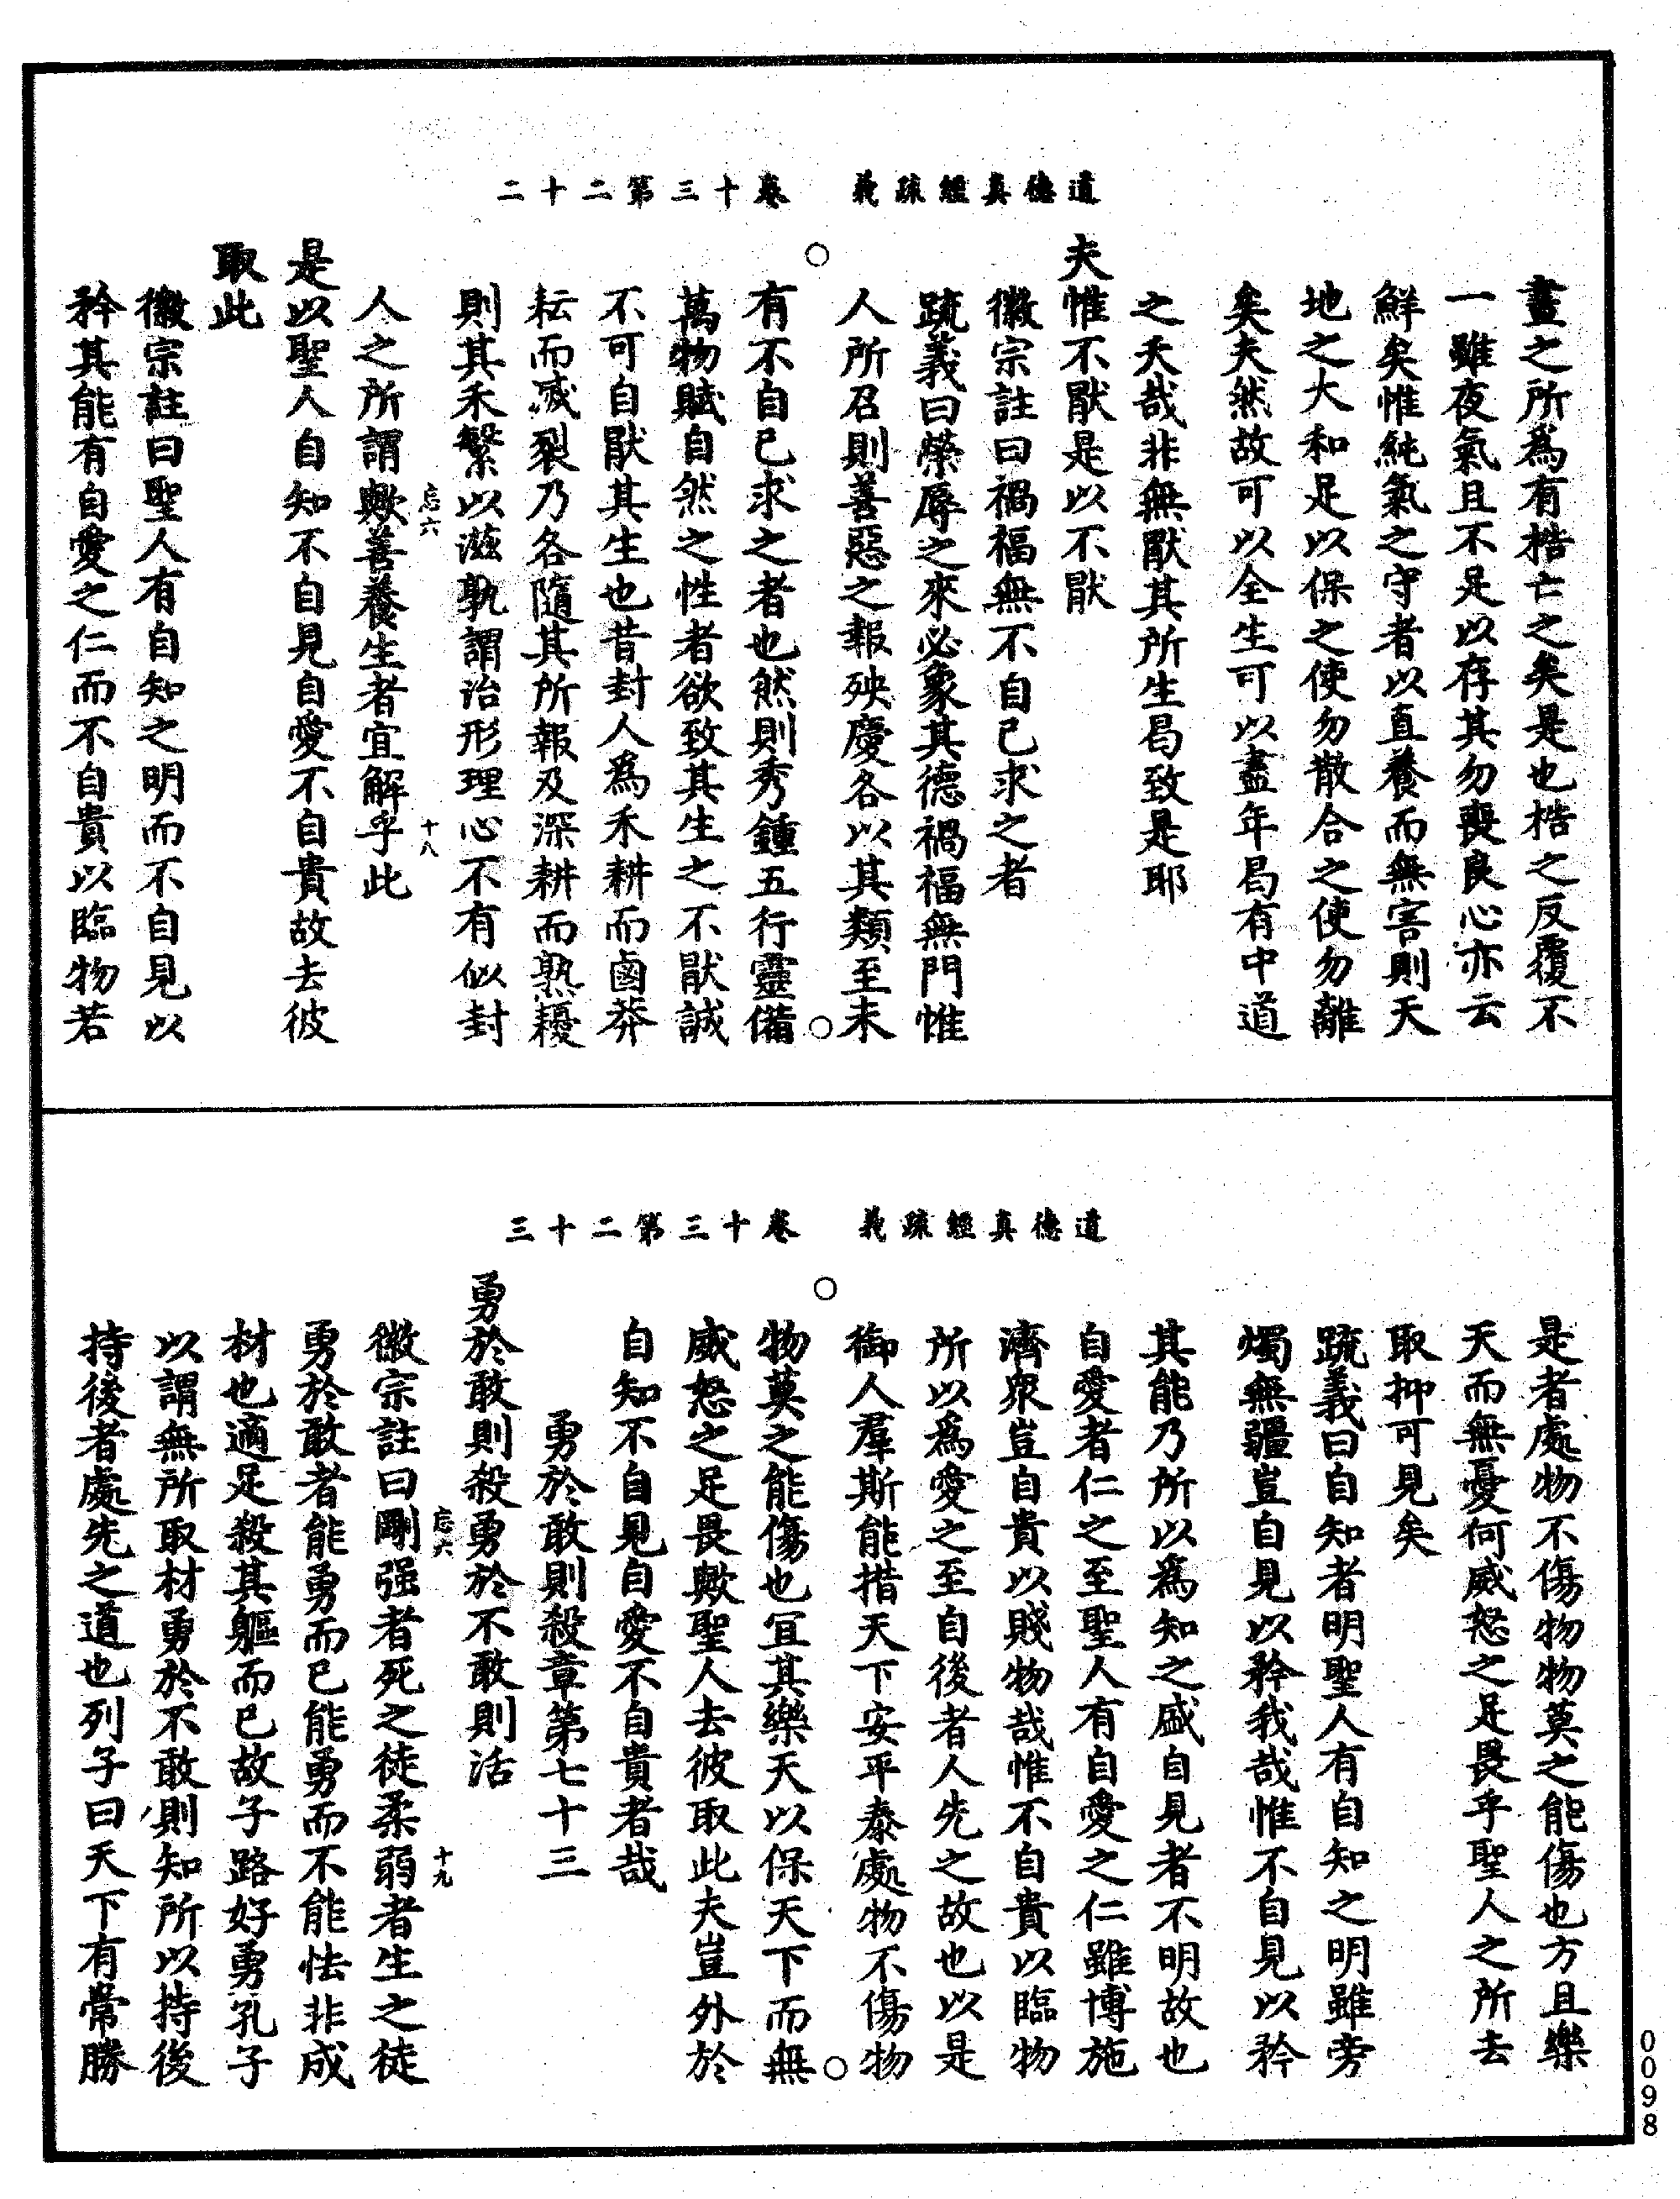 道德真經疏義　卷十三第二十二
晝之所爲有梏亡之矣是也梏之反覆不
一雖夜氣且不足以存其勿喪良心亦云
鮮矣惟純氣之守者以直養而無害則天
地之大和足以保之使勿散合之使勿離
矣夫然故可以全生可以盡年曷有中道
之夭哉非無猒其所生曷致是耶
夫惟不猒是以不猒
徽宗註曰禍福無不自己求之者
疏義曰榮辱之來必象其德禍福無門惟
人所召則善惡之報殃慶各以其類至未
有不自己求之者也然則秀鍾五行靈備
萬物賦自然之性者欲致其生之不猒誠
不可自猒其生也昔封人爲禾耕而鹵莽
耘而滅裂乃各隨其所報及深耕而熟耰
則其禾繁以滋孰謂治形理心不有似封
忘六
十八
人之所謂歟善養生者宜解乎此
是以聖人自知不自見自愛不自貴故去彼
取此
徽宗註曰聖人有自知之明而不自見以
矜其能有自愛之仁而不自貴以臨物若
道德真經疏義　卷十三第二十三
是者處物不傷物物莫之能傷也方且樂
天而無憂何威怒之足畏乎聖人之所去
取抑可見矣
疏義曰自知者明聖人有自知之明雖旁
燭無疆豈自見以矜我哉惟不自見以矜
其能乃所以爲知之盛自見者不明故也
自愛者仁之至聖人有自愛之仁雖博施
濟衆豈自貴以賤物哉惟不自貴以臨物
所以爲愛之至自後者人先之故也以是
御人羣斯能措天下安平泰處物不傷物
物莫之能傷也宜其樂天以保天下而無
威怒之足畏歟聖人去彼取此夫豈外於
自知不自見自愛不自貴者哉
勇於敢則殺章第七十三
勇於敢則殺勇於不敢則活
忘六
十九
徽宗註曰剛强者死之徒柔弱者生之徒
勇於敢者能勇而已能勇而不能怯非成
材也適足殺其軀而已故子路好勇孔子
以謂無所取材勇於不敢則知所以持後
持後者處先之道也列子曰天下有常勝
0098